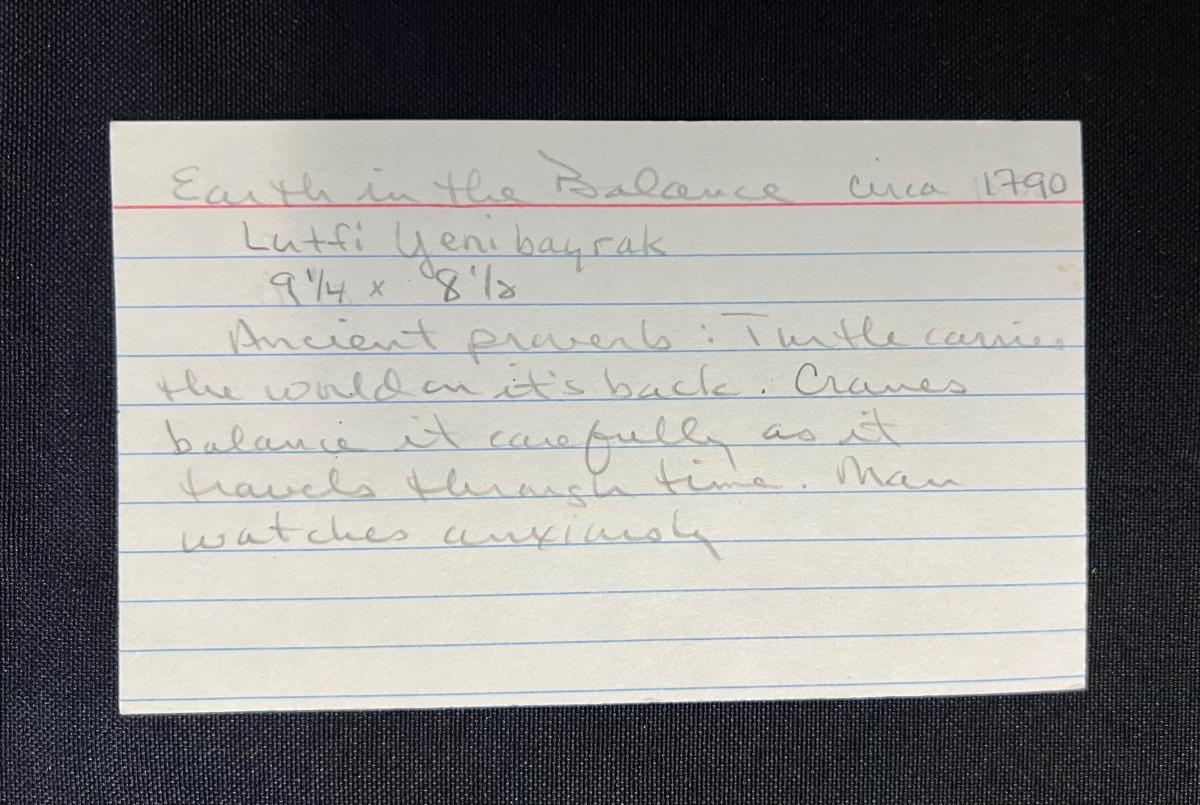 Earth in the Balance circa 1790
Lutfi Yenibayrak
9 1/4 x 8 1/2
Ancient proverb : Turtle carries
the world on it's back. Cranes
balance it carefully as it
travels through time. Man
watches anxiously